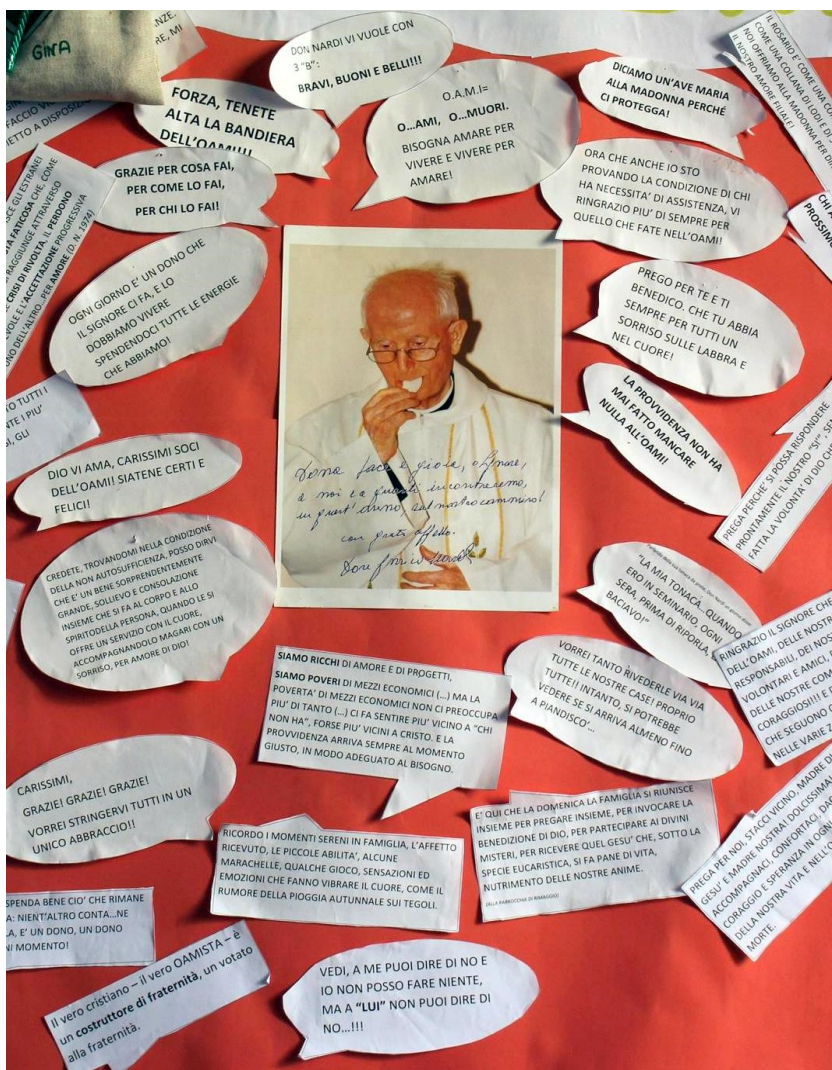 GINA
DON NARDI VI VUOLE CON
3 "B":
BRAVI, BUONI E BELLI!!!
FORZA, TENETE
ALTA LA BANDIERA
DELL'OAMI!!!
O.A.M.I=
O...AMI, O...MUORI.
BISOGNA AMARE PER
VIVERE E VIVERE PER
AMARE!
DICIAMO UN'AVE MARIA
ALLA MADONNA PERCHÉ
CI PROTEGGA!
IL ROSARIO E' COME UNA
COME UNA COLLANA DI LODI E DI
NOI OFFRIAMO ALLA MADONNA PER
IL NOSTRO AMORE FILIALE!
GRAZIE PER COSA FAI,
PER COME LO FAI,
PER CHI LO FAI!
ORA CHE ANCHE IO STO
PROVANDO LA CONDIZIONE DI CHI
HA NECESSITA' DI ASSISTENZA, VI
RINGRAZIO PIU' DI SEMPRE PER
QUELLO CHE FATE NELL'OAMI!
CHI
PROSSIM
SCE GLI ESTRANEI
TA FATICOSA CHE, COME
RAGGIUNGE ATTRAVERSO
CRISI DI RIVOLTA, IL PERDONO
VOLE E L'ACCETTAZIONE PROGRESSIVA
UNO DELL'ALTRO...PER AMORE (D. N. 1974)
OGNI GIORNO E' UN DONO CHE
IL SIGNORE CI FA, E LO
DOBBIAMO VIVERE
SPENDENDOCI TUTTE LE ENERGIE
CHE ABBIAMO!
PREGO PER TE E TI
BENEDICO. CHE TU ABBIA
SEMPRE PER TUTTI UN
SORRISO SULLE LABBRA E
NEL CUORE!
LA PROVVIDENZA NON HA
MAI FATTO MANCARE
NULLA ALL'OAMI!
TO TUTTI I
NTE I PIU'
GLI
PREGA PERCHE' SI POSSA RISPONDERE
PRONTAMENTE IL NOSTRO "SI"
FATTA LA VOLONTA' DI DIO
DIO VI AMA, CARISSIMI SOCI
DELL'OAMI! SIATENE CERTI E
FELICI!
Dona pace e gioia, o Signore,
a noi e a quanti incontreremo,
in quest'anno, sul nostro cammino!
con grato affetto.
CREDETE, TROVANDOMI NELLA CONDIZIONE
DELLA NON AUTOSUFFICIENZA, POSSO DIRVI
CHE E' UN BENE SORPRENDENTEMENTE
GRANDE, SOLLIEVO E CONSOLAZIONE
INSIEME CHE SI FA AL CORPO E ALLO
SPIRITODELLA PERSONA, QUANDO LE SI
OFFRE UN SERVIZIO CON IL CUORE,
ACCOMPAGNANDOLO MAGARI CON UN
SORRISO, PER AMORE DI DIO!
"LA MIA TONACA...QUANDO
ERO IN SEMINARIO, OGNI
SERA, PRIMA DI RIPORLA,
BACIAVO!"
RINGRAZIO IL SIGNORE CHE
DELL'OAMI, DELLE NOSTR
RESPONSABILI, DEI NOS
VOLONTARI E AMICI,
DELLE NOSTRE COM
CORAGGIOSI!!! E
CHE SEGUONO
NELLE VARIE
SIAMO RICCHI DI AMORE E DI PROGETTI,
SIAMO POVERI DI MEZZI ECONOMICI (...) MA LA
POVERTA' DI MEZZI ECONOMICI NON CI PREOCCUPA
PIU' DI TANTO (...) CI FA SENTIRE PIU' VICINO A "CHI
NON HA", FORSE PIU' VICINI A CRISTO. E LA
PROVVIDENZA ARRIVA SEMPRE AL MOMENTO
GIUSTO, IN MODO ADEGUATO AL BISOGNO.
VORREI TANTO RIVEDERLE VIA VIA
TUTTE LE NOSTRE CASE! PROPRIO
TUTTE!! INTANTO, SI POTREBBE
VEDERE SE SI ARRIVA ALMENO FINO
A PIANDISCO'...
CARISSIMI,
GRAZIE! GRAZIE! GRAZIE!
VORREI STRINGERVI TUTTI IN UN
UNICO ABBRACCIO!!
RICORDO I MOMENTI SERENI IN FAMIGLIA, L'AFFETTO
RICEVUTO, LE PICCOLE ABILITA', ALCUNE
MARACHELLE, QUALCHE GIOCO, SENSAZIONI ED
EMOZIONI CHE FANNO VIBRARE IL CUORE, COME IL
RUMORE DELLA PIOGGIA AUTUNNALE SUI TEGOLI.
E' QUI CHE LA DOMENICA LA FAMIGLIA SI RIUNISCE
INSIEME PER PREGARE INSIEME, PER INVOCARE LA
BENEDIZIONE DI DIO, PER PARTECIPARE AI DIVINI
MISTERI, PER RICEVERE QUEL GESU' CHE, SOTTO LA
SPECIE EUCARISTICA, SI FA PANE DI VITA,
NUTRIMENTO DELLE NOSTRE ANIME.
(ALLA PARROCCHIA DI RIMAGGIO)
PREGA PER NOI, STACCI VICINO, MADRE DI
GESU' E MADRE NOSTRA! DOLCISSIMA
ACCOMPAGNACI, CONFORTACI, DA
CORAGGIO E SPERANZA IN OGN
DELLA NOSTRA VITA E NELL'O
MORTE.
SPENDA BENE CIO' CHE RIMANE
A: NIENT'ALTRO CONTA...NE
A, E' UN DONO, UN DONO
NI MOMENTO!
Il vero cristiano – il vero OAMISTA – è
un costruttore di fraternità, un votato
alla fraternità.
VEDI, A ME PUOI DIRE DI NO E
IO NON POSSO FARE NIENTE,
MA A "LUI" NON PUOI DIRE DI
NO...!!!